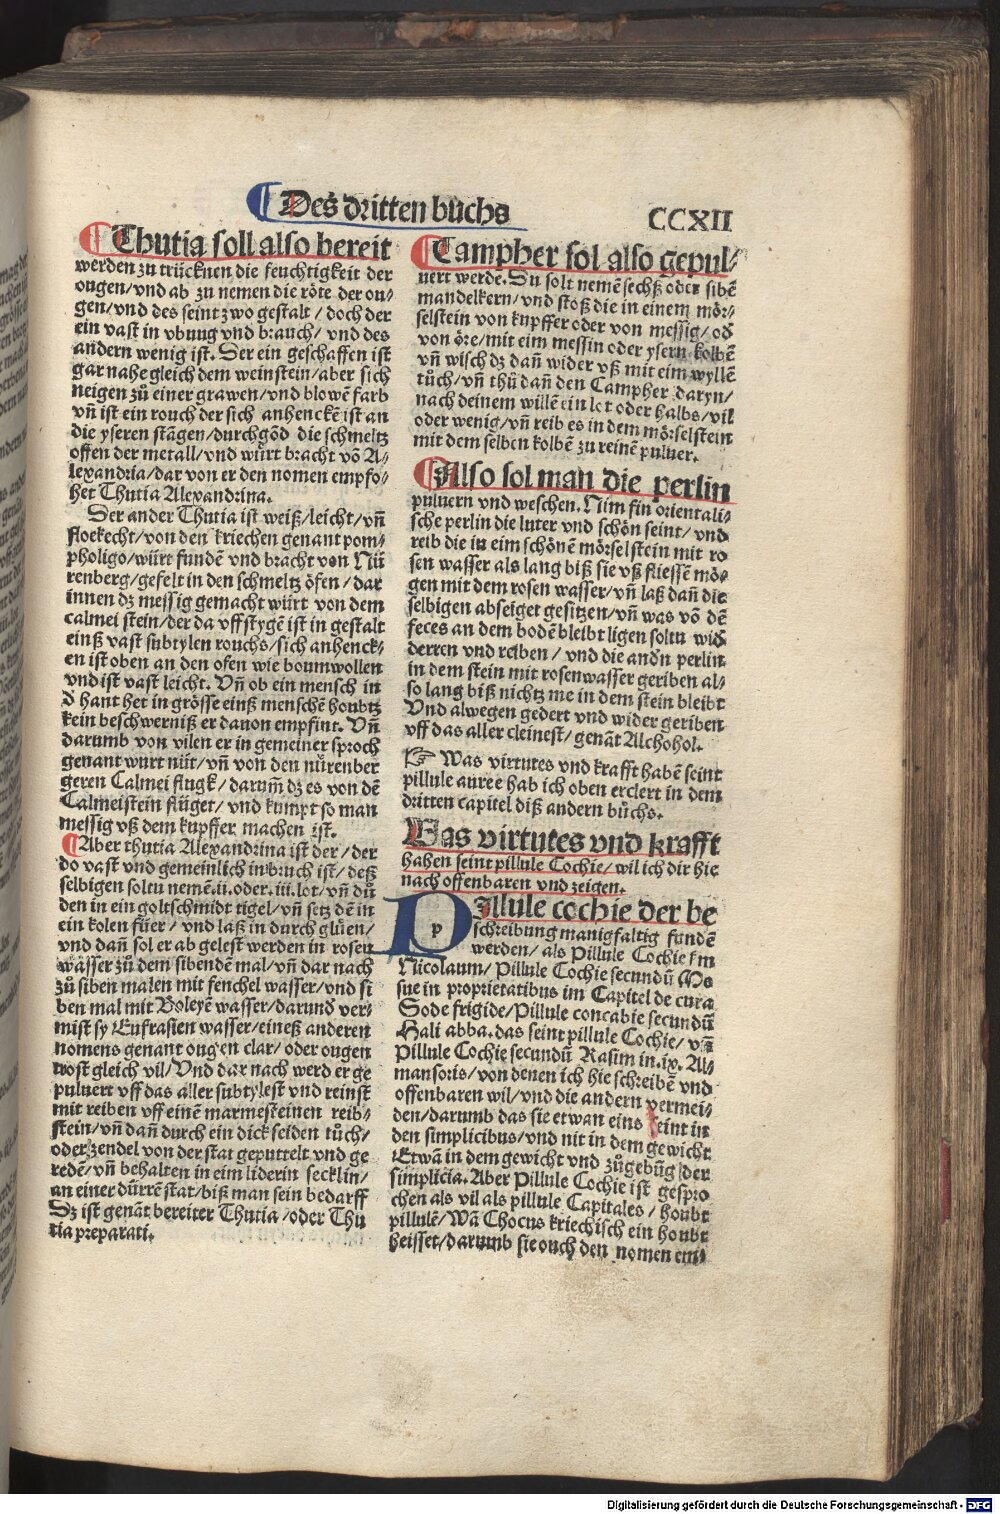 Des dritten bůchs
CCXII
Thutia soll also bereit
werden zu trücknen die feuchtigkeit der
ougen/vnd ab zu nemen die röte der ou/
gen/vnd des seint zwo gestalt/doch der
ein vast in vbung vnd brauch/vnd des
andern wenig ist. Der ein geschaffen ist
gar nahe gleich dem weinstein/aber sich
neigen zů einer grawen/vnd blowē farb
vñ ist ein rouch der sich anhenckē ist an
die yseren stāgen/durchgōd die schmeltz
offen der metall/vnd würt bracht vō A/
lexandria/dar von er den nomen empfo/
het Thutia Alexandrina.
Der ander Thutia ist weiß/leicht/vñ
floekecht/von den kriechen genant pom/
pholigo/würt fundē vnd bracht von Nü
renberg/gefelt in den schmeltz öfen/dar
innen dz messig gemacht würt von dem
calmei stein/der da vffstygē ist in gestalt
einß vast subtylen rouchs/sich anhenck/
en ist oben an den ofen wie boumwollen
vnd ist vast leicht. Vñ ob ein mensch in
d̄ hant het in grösse einß menschē houbtz
kein beschwerniß er dauon empfint. Vñ
darumb von vilen er in gemeiner sproch
genant wurt nüt/vñ von den nürenber
geren Calmei flugk/darum̄ dz es von dē
Calmeistein flüget/vnd kumpt so man
messig vß dem kupffer machen ist.
Aber thutia Alexandrina ist der/der
do vast vnd gemeinlich in bruch ist/deß
selbigen soltu nemē.ii.oder.iii.lot/vñ dů
den in ein goltschmidt tigel/vñ setz dē in
ein kolen füer/vnd laß in durch glüen/
vnd dañ sol er ab gelest werden in rosen
wasser zů dem sibenden mal/vñ dar nach
zů siben malen mit fenchel wasser/vnd si
ben mal mit Boleyē wasser/darund̄ ver/
mist sy Eufrasien wasser/eineß anderen
nomens genant ougen clar/oder ougen
trost gleich vil/Vnd dar nach werd er ge
puluert vff das aller subtylest vnd reinst
mit reiben vff einē marmesteinen reib/
stein/vñ dañ durch ein dick seiden tůch/
oder zendel von der stat geputtelt vnd ge
redē/vñ behalten in eim liderin secklin/
an einer dürrē stat/biß man sein bedarff
Dz ist genāt bereiter Thutia/oder Thu
tia preparati.
Campher sol also gepul/
uert werde. Du solt nemē sechß oder sibē
mandelkern/vnd stoß die in einem mör/
selstein von kupffer oder von messig/od̄
von öre/mit eim messin oder ysern kolbē
vñ wisch dz dañ wider vß mit eim wyllē
tůch/vñ thů dañ den Campher daryn/
nach deinem willē ein lot oder halbs/vil
oder wenig/vñ reib es in dem mörselstein
mit dem selben kolbē zu reinē puluer.
Also sol man die perlin
puluern vnd weschen. Nim fin orientali/
sche perlin die luter vnd schön seint/vnd
reib die in eim schönē mörselstein mit ro
sen wasser als lang biß sie vß fliessē mö/
gen mit dem rosen wasser/vñ laß dañ die
selbigen abseiget gesitzen/vñ was vō dē
feces an dem bodē bleibt ligen soltu wid̄
derren vnd reiben/vnd die andn̄ perlin
in dem stein mit rosenwasser geriben al/
so lang biß nichtz me in dem stein bleibt
Vnd alwegen gedert vnd wider geriben
vff das aller cleinest/genāt Alchohol.
☞ Was virtutes vnd krafft habē seint
pillule auree hab ich oben erclert in dem
dritten capitel diß andern bůchs.
Was virtutes vnd krafft
haben seint pillule Cochie/wil ich dir hie
nach offenbaren vnd zeigen.
Pillule cochie der be
schreibung manigfaltig fundē
werden/als Pillule Cochie km
Nicolaum/Pillule Cochie secundū Me
sue in proprietatibus im Capitel de cura
Sode frigide/Pillule concabie secundū
Hali abba.das seint pillule Cochie/vñ
Pillule Cochie secundū Rasim in.ix.Al/
mansoris/von denen ich hie schreibē vnd
offenbaren wil/vnd die andern vermei/
den/darumb das sie etwan eins seint in
den simplicibus/vnd nit in dem gewicht
Etwā in dem gewicht vnd zůgebūg der
simplicia. Aber Pillule Cochie ist gespro
chen als vil als pillule Capitales/houbt
pillulē/Wā Chocus kriechisch ein houbt
heisset/darumb sie ouch den nomen em/
Digitalisierung gefördert durch die Deutsche Forschungsgemeinschaft - DFG